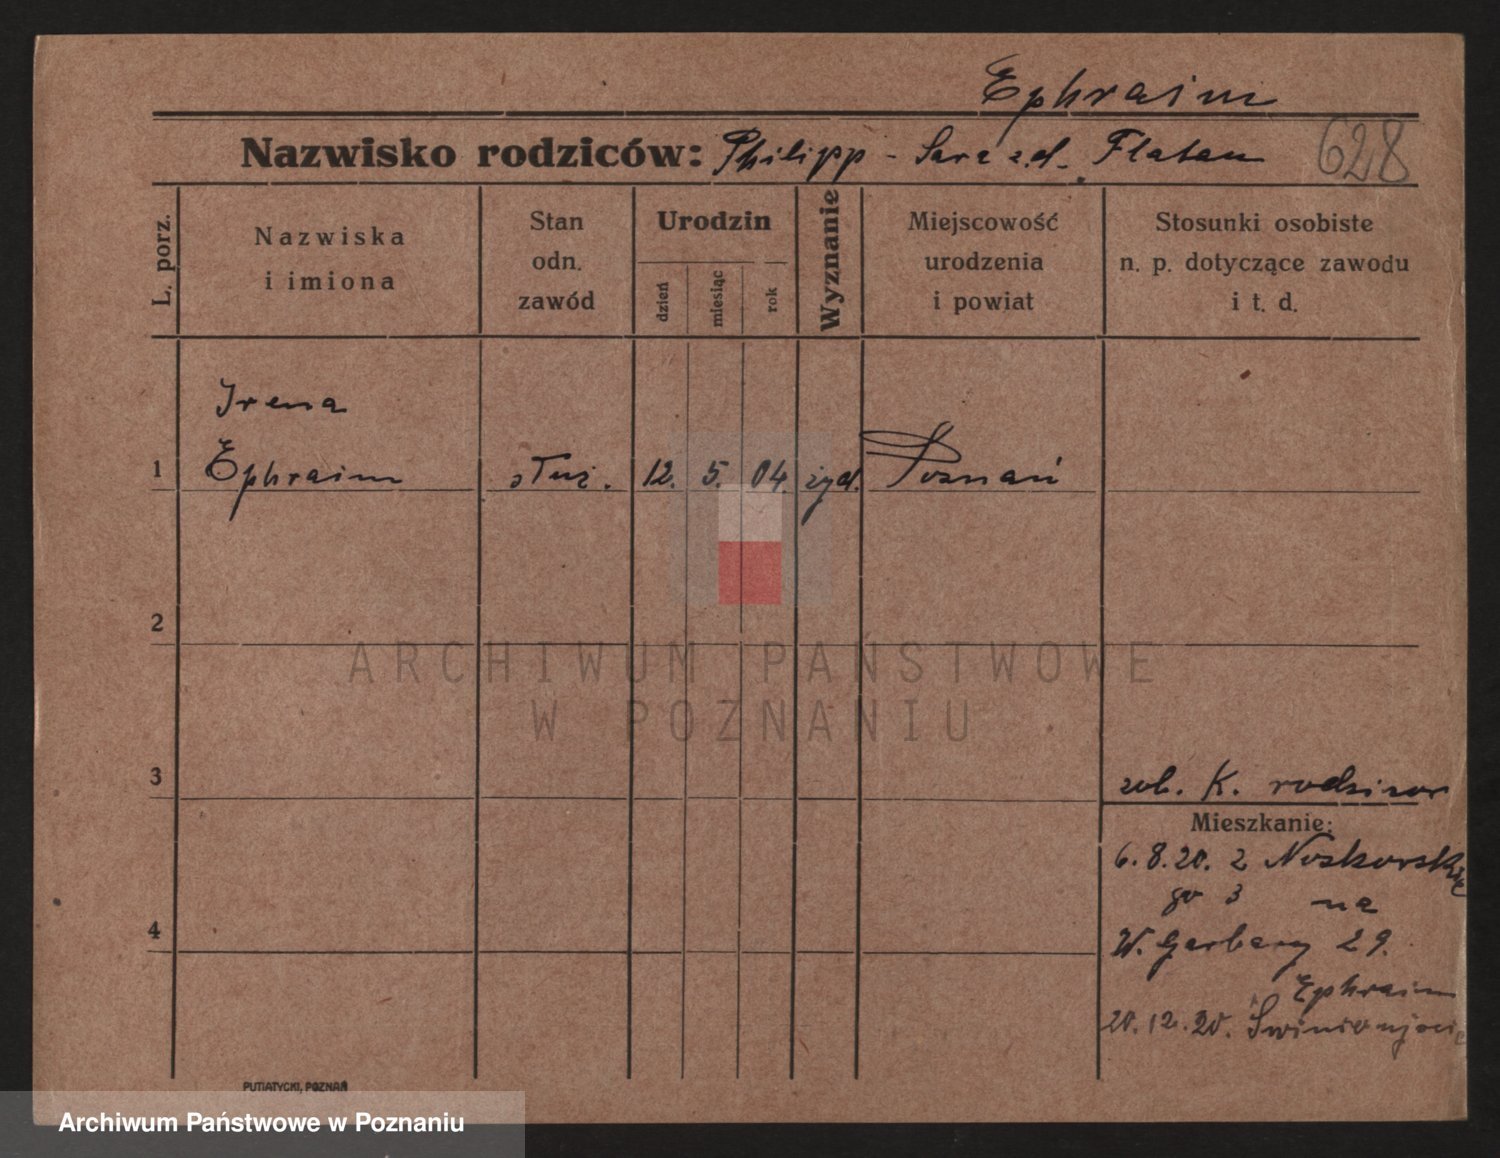 Ephraim
Nazwisko rodziców: Philipp - Sara z.d. Flatau
628
L. porz.
Nazwiska
i imiona
Stan
odn.
zawód
Urodzin
dzień
miesiąc
rok
Wyznanie
Miejscowość
urodzenia
i powiat
Stosunki osobiste
n. p. dotyczące zawodu
i t. d.
Irena
1 Ephraim służ. 12. 5. 04. żyd. Poznań
2
ARCHIWUM PAŃSTWOWE
W POZNANIU
3
zob. K. rodziców
Mieszkanie:
6.8.20. z Noskowskie
go 3 na
W. Garbary 29.
4
Ephraim
20.12.20. Swinioujście
PUTIATYCKI, POZNAŃ
Archiwum Państwowe w Poznaniu